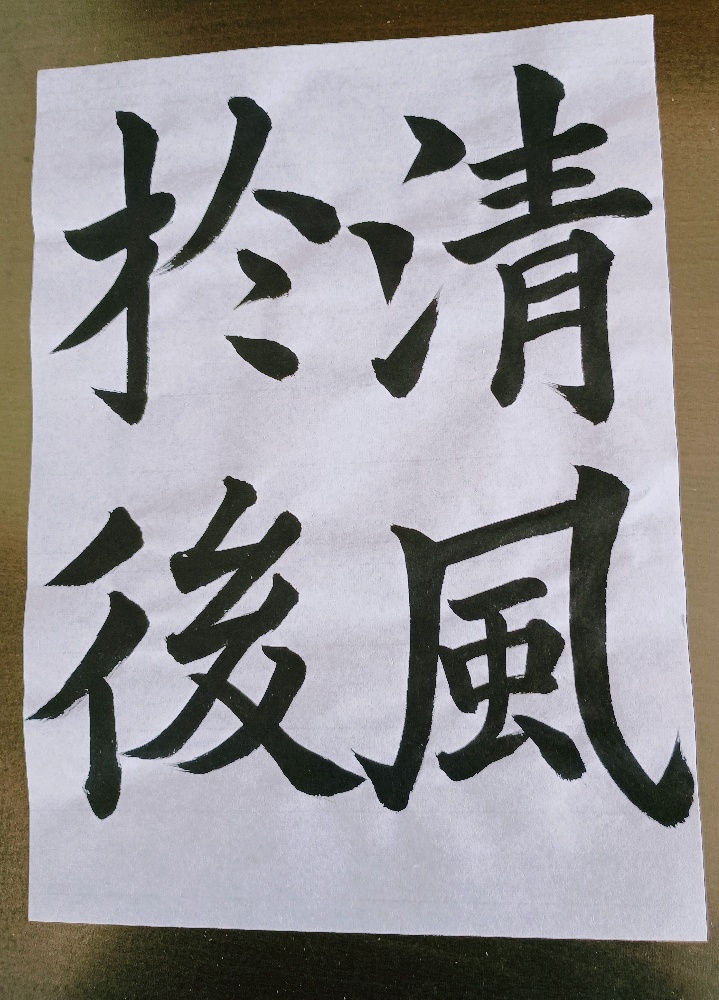 清風
於後